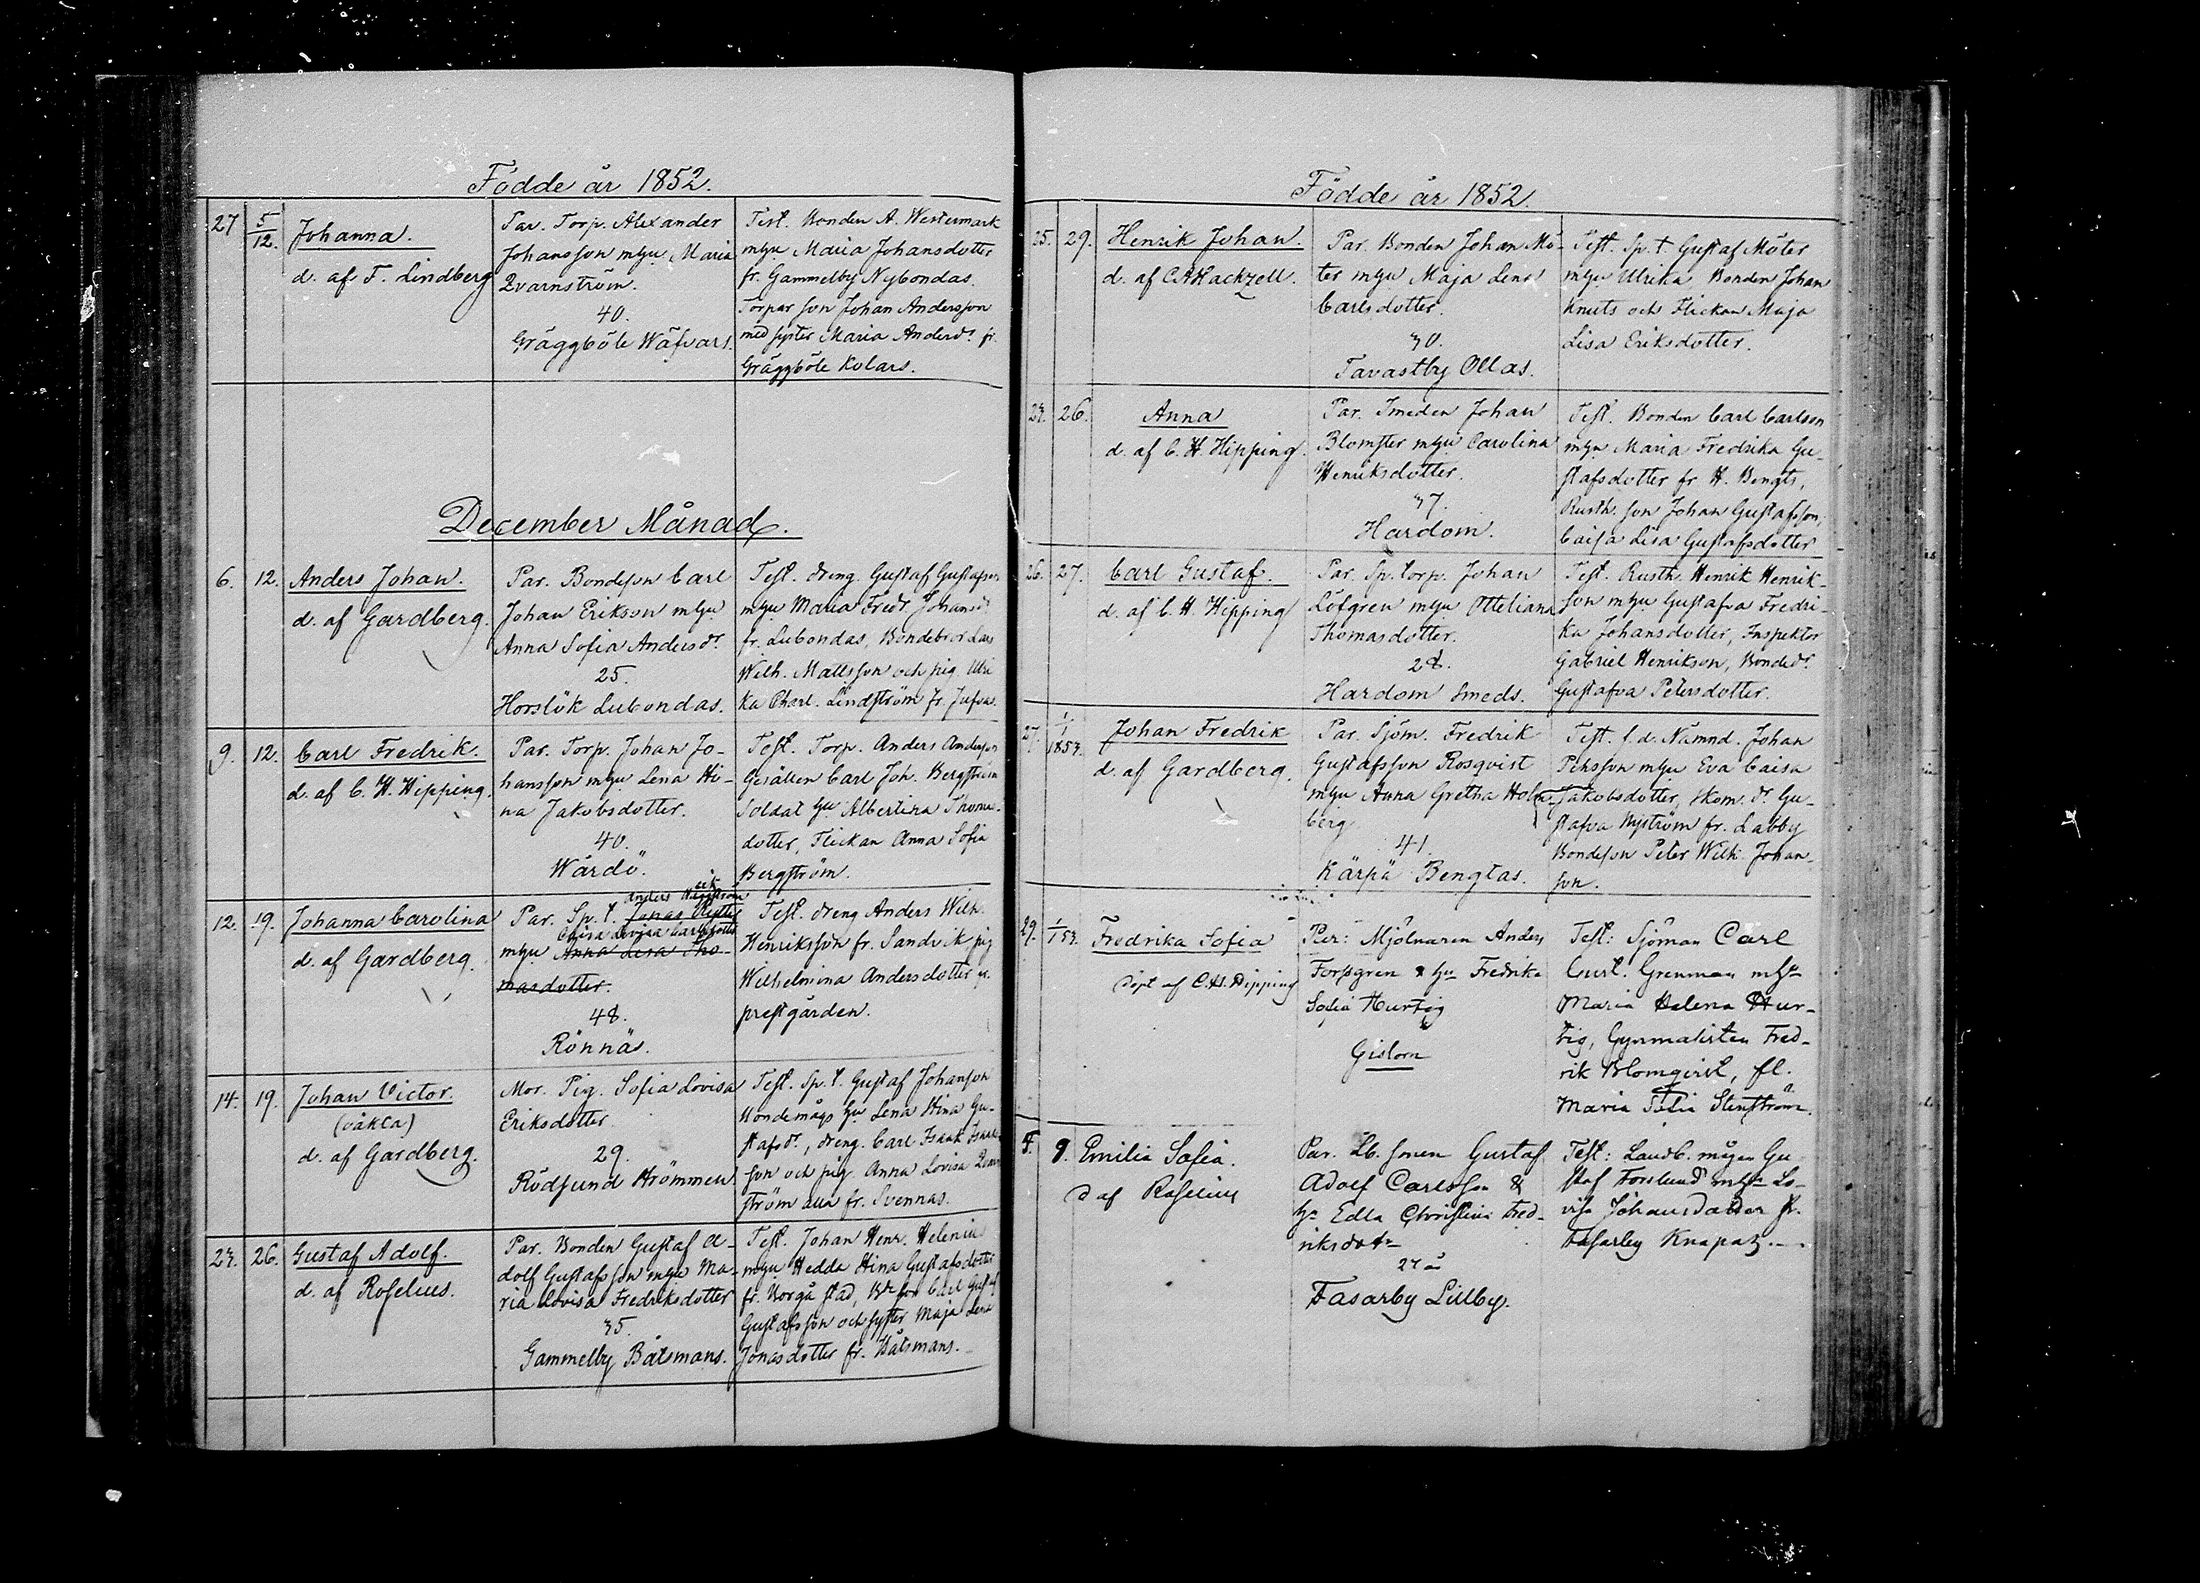 Födde år 1852.
27 5/12. Johanna.
d. af F. Lindberg
Par. Torp. Alexander
Johansson m hu Maria
Qvarnström.
40.
Gräggböle Wäfvars.
Test. Bonden A. Westermark
m hu Maria Johansdotter
fr. Gammelby Nybondas.
Torpar son Johan Andersson
med syster Maria Andersdr fr.
Gräggböle Kolars.
December Månad.
6. 12. Anders Johan.
d. af Gardberg.
Par. Bondeson Carl
Johan Erikson m hu
Anna Sofia Andersdr
25.
Horslök Lubondas.
Test. dreng. Gustaf Gustafson
m hu Maria Fredr. Johansdr
fr. Lubondas, Bondebror Lars
Wilh. Mattsson och pig. Ulri
ka Charl. Lindström fr. Jufvas.
9. 12. Carl Fredrik.
d. af C. H. Hipping.
Par. Torp. Johan Jo-
hansson m hu Lena Sti-
na Jakobsdotter.
40.
Wårdö.
Test. Torp. Anders Anderson
Gesällen Carl Joh. Bergström
Soldat hu Albertina Thoma-
dotter, Flickan Anna Sofia
Bergström.
12. 19. Johanna Carolina
d. af Gardberg.
Anders
Par. Sp. t. Jonas
Caisa Lovisa Carlsdotter
m hu Anna Lisa Tho-
masdotter.
48.
Rönnäs.
Test. dreng Anders Wilh.
Henriksson fr. Sandvik pig
Wilhelmina Andersdotter u.
prestgården.
14. 19. Johan Victor.
(oäkta)
d. af Gardberg.
Mor. Pig. Sofia Lovisa
Eriksdotter
29.
Rödsund Strömmen.
Test. Sp. t. Gustaf Johanson
Bondemågs hu Lena Stina Gu-
stafsdr, dreng. Carl Isaak Isaak
son och pig. Anna Lovisa Qvarn
ström alla fr. Svennas.
23. 26. Gustaf Adolf.
d. af Roselius.
Par. Bonden Gustaf A-
dolf Gustafsson m hu Ma-
ria Lovisa Fredriksdotter
35.
Gammelby Båtsmans.
Test. Johan Henr. Helenius
m hu Hedda Stina Gustafsdotter
fr. Borgå stad, Bd son Carl Gustaf
Gustafsson och syster Maja Lena
Jonasdotter fr. Båtsmans.
Födde år 1852.
25. 29. Henrik Johan.
d. af C. A. Hackzell.
Par. Bonden Johan Mö-
ter m hu Maja Lena
Carlsdotter.
30.
Tavastby Ollas.
Test. Sp. t Gustaf Möter
m hu Ulrika Bonden Johan
Knuts och Flickan Maja
Lisa Eriksdotter.
23. 26. Anna
d. af C. H. Hipping.
Par. Smeden Johan
Blomster m hu Carolina
Henriksdotter.
37.
Hardom.
Test. Bonden Carl Carlson
m hu Maria Fredrika Gu-
stafsdotter fr H. Bengts,
Rusth. son Johan Gustafsson,
Caisa Lisa Gustafsdotter
26. 27. Carl Gustaf.
d. af C. H. Hipping
Par. Sp. torp. Johan
Löfgren m hu Otteliana
Thomasdotter.
28.
Hardom Smeds.
Test. Rusth. Henrik Henrik-
son m hu Gustafva Fredri-
ka Johansdotter, Inspektor
Gabriel Henrikson, Bondedr
Gustafva Petersdotter.
27. 1/1 1853. Johan Fredrik
d. af Gardberg.
Par. Sjöm. Fredrik
Gustafsson Rosqvist
m hu Anna Gretha Holm-
berg
41.
Kärpä Bengtas.
Test. f. d. Nämnd. Johan
Pehrsson m hu Eva Caisa
Jakobsdotter, Skom. dr Gu-
stafva Nyström fr. Labby
Bondeson Peter Wilh. Johan-
son.
29. 1/1 53. Fredrika Sofia
döpt af C. H. Hipping
Par: Mjölnaren Anders
Forssgren & hu Fredrika
Sofia Hurtig
Gislom
Test: Sjöman Carl
Gust. Grenman m hu
Maria Helena Hur-
tig, Gymnasisten Fred-
rik Blomqvist, fl.
Maria Sofia Stenström.
7. 9. Emilia Sofia.
d af Roselius
Par. Lb. sonen Gustaf
Adolf Carlsson &
hu Edla Christina Fred-
riksdotr
27 år
Fasarby Lillby.
Test: Landb. mågen Gu
staf Forslund m hu Lo-
visa Johansdotter fr.
Fasarby Knapas.